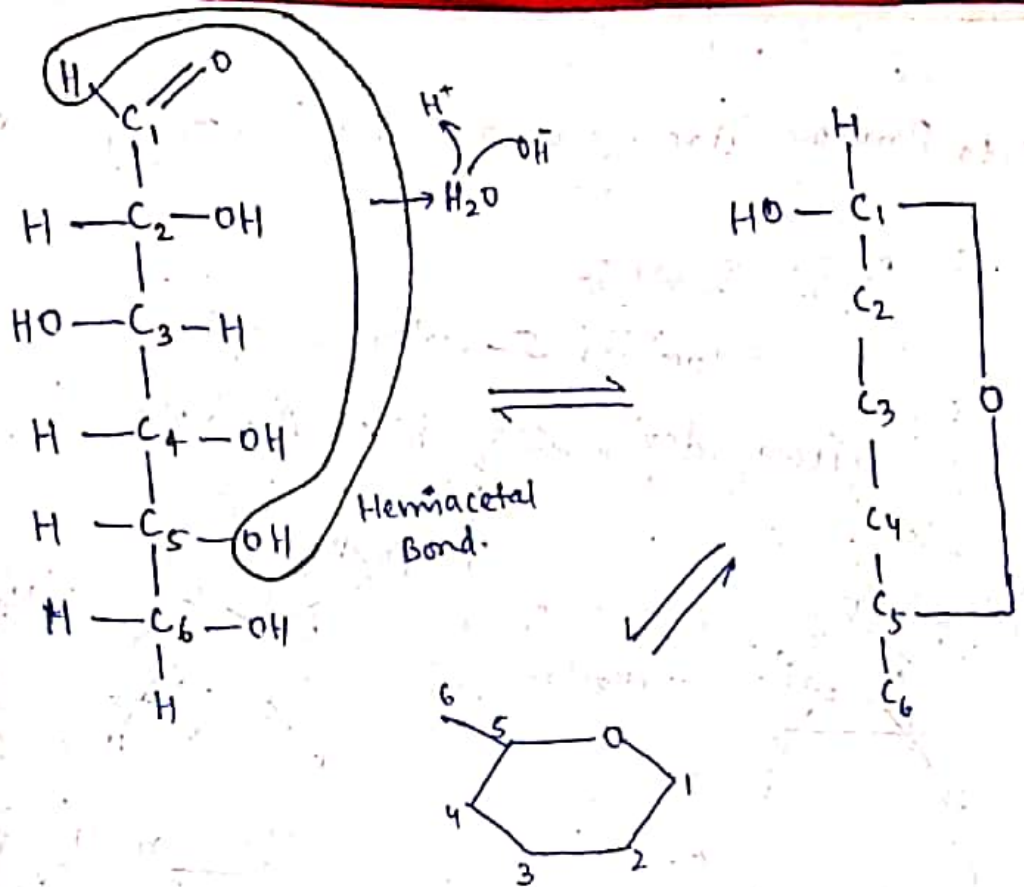 H O
C1
H+
OH-
H2O
H — C2 — OH
HO — C3 — H
H — C4 — OH
H — C5 — OH
H — C6 — OH
H
Hemiacetal
Bond.
H
HO — C1
C2
C3
O
C4
C5
C6
6
5 O
4 1
3 2